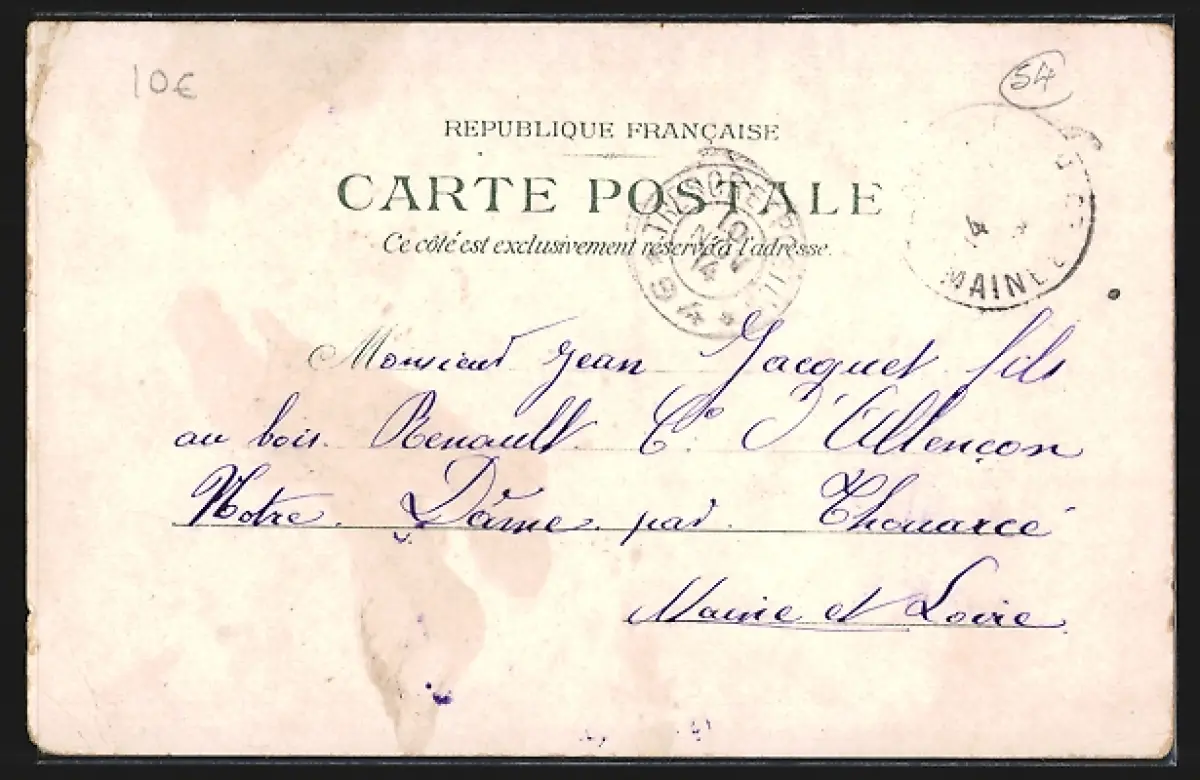 10€
54
REPUBLIQUE FRANÇAISE
CARTE POSTALE
Ce côté est exclusivement réservé à l'adresse.
TRESOR ET POSTES
10
NOV
14
94
14
MAINE
Monsieur Jean Jacquet fils
au bois Renault Cne d'Allençon
Notre Dâme par Thouarcé
Maine et Loire